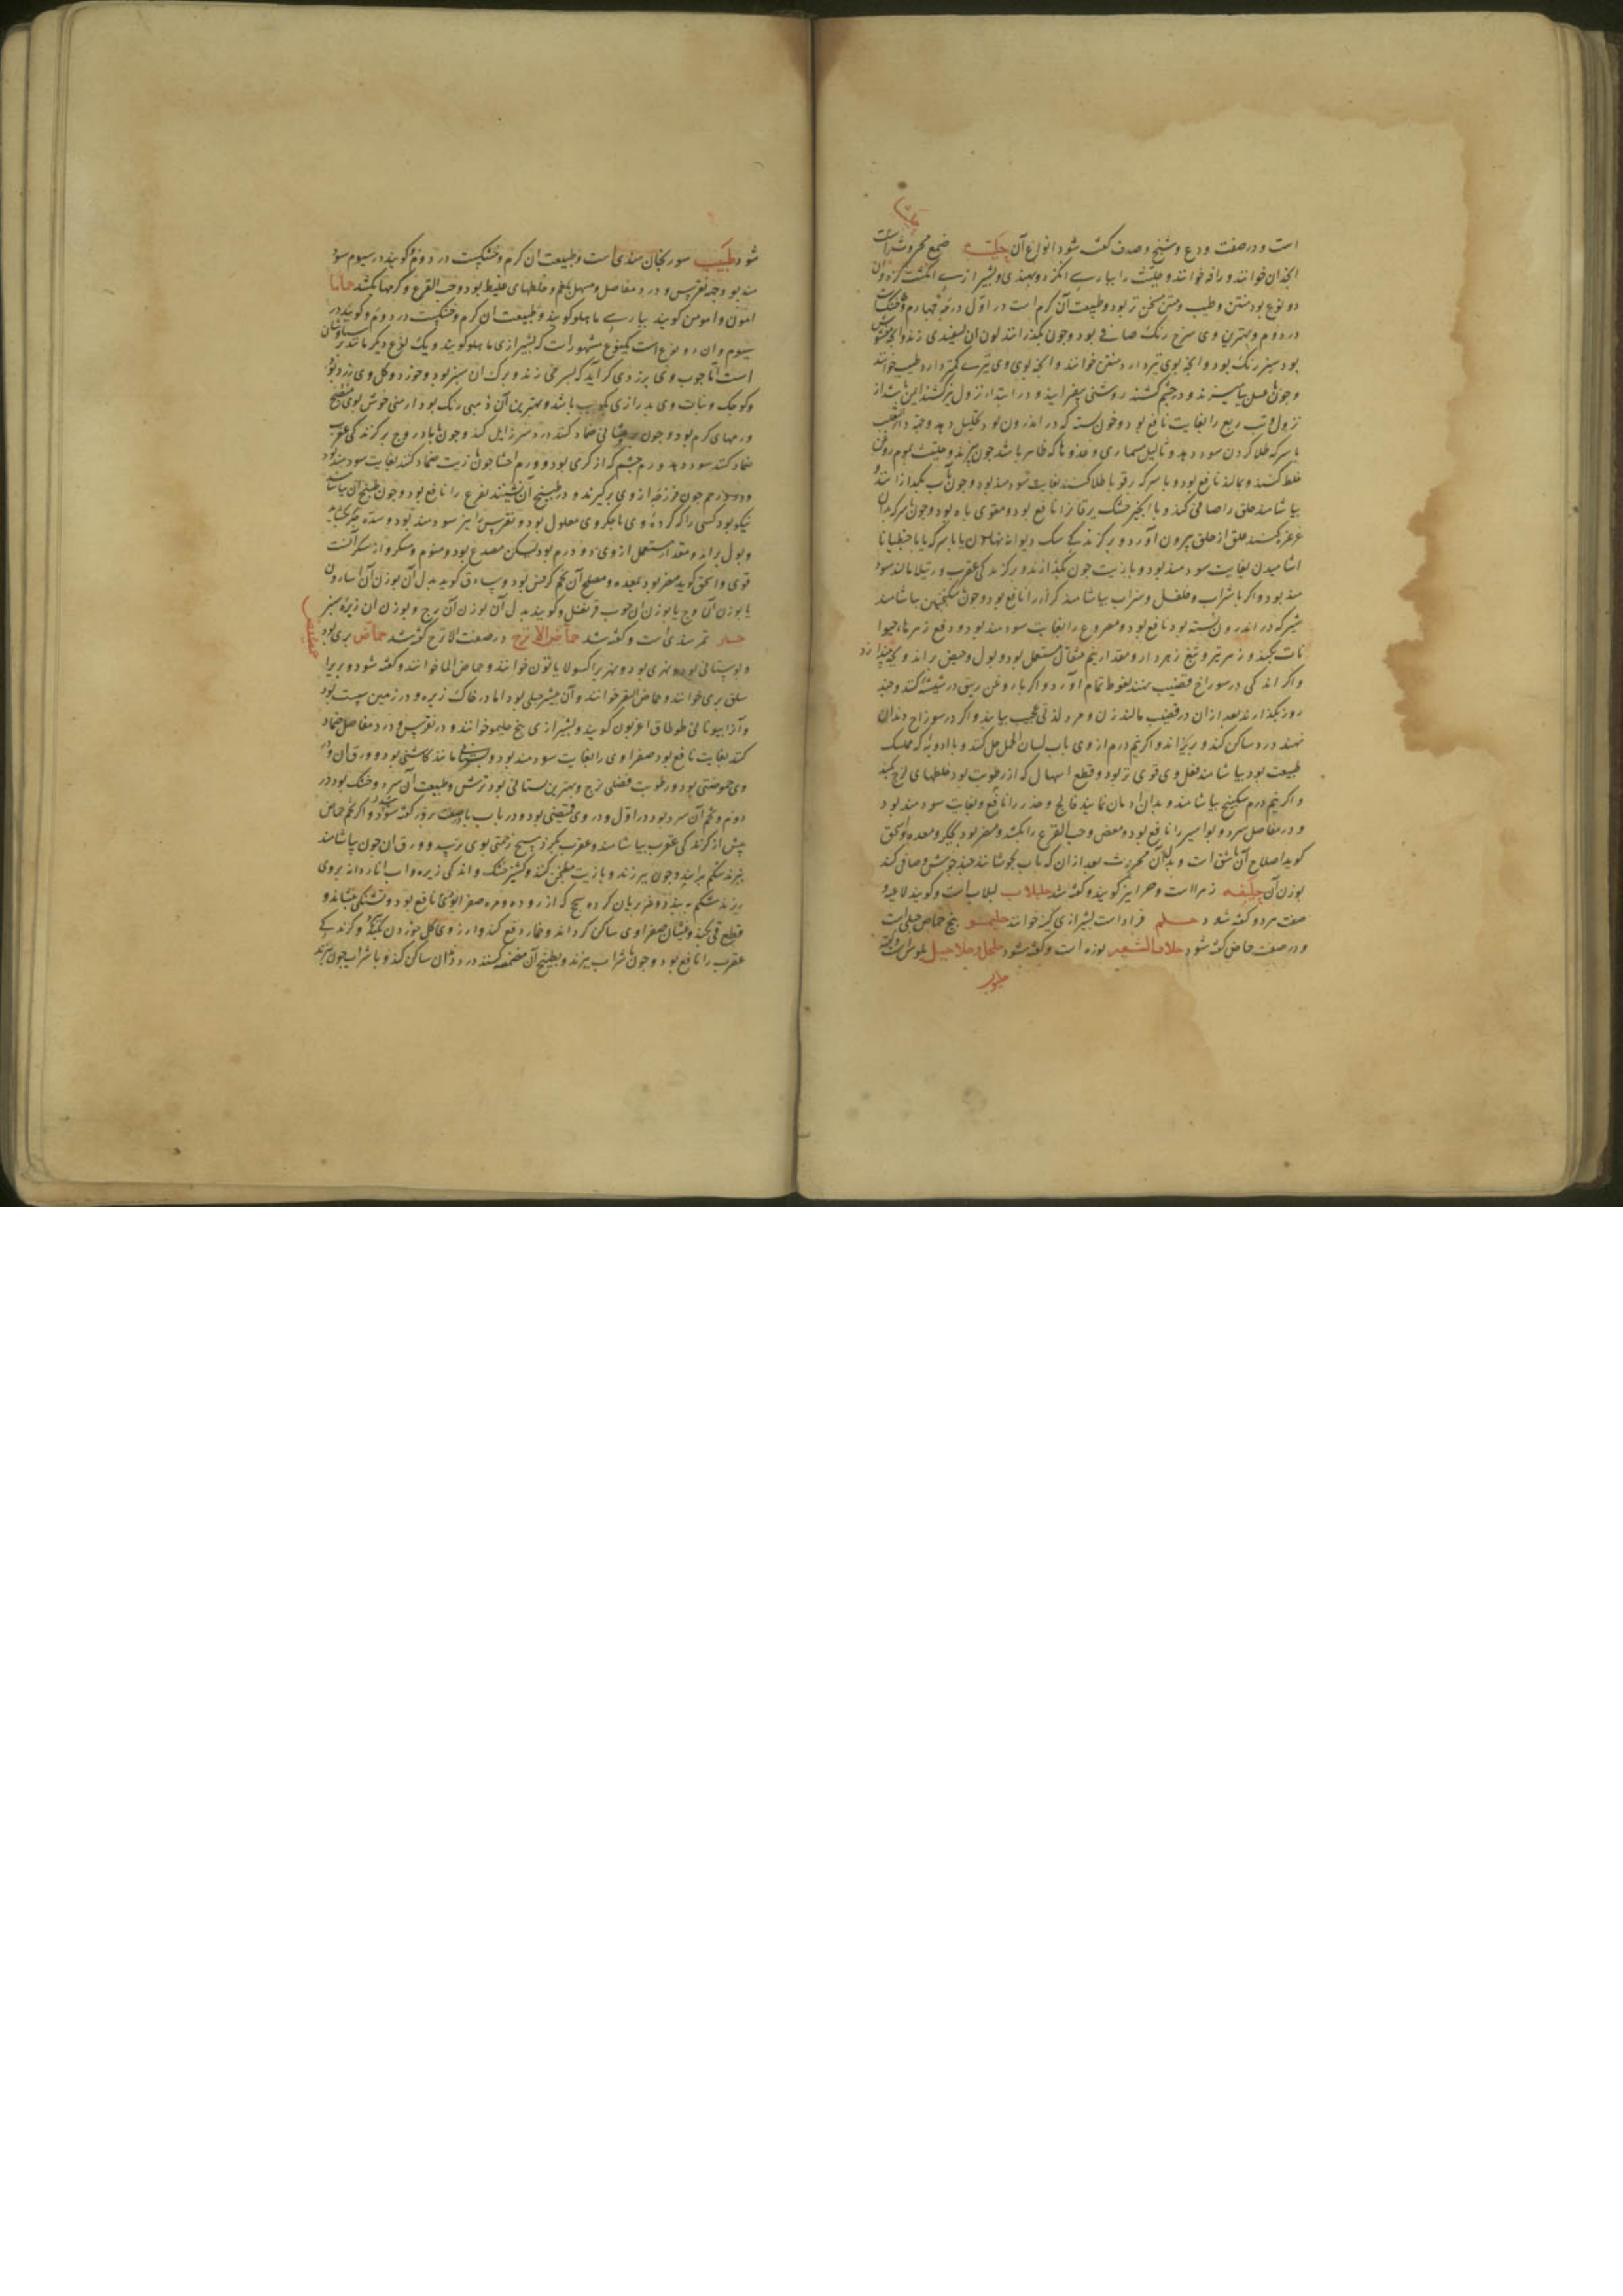 است و در صفت ودع و شنج و صدف گفته شود انواع آن حلتیت صمغ محروث است
انجدان خوانند و رافه خوانند و حلتیت را بپارسی انگزد و بهندی و بشیرازی انگشت کزه و آن
دو نوع بود منتن و طیب و منتن سخن تر بود و طبیعت آن گرم است در اول درجه چهارم و خشکست
در دوم و بهترین وی سرخ رنگ صافی بود و چون بگدازانند لون آن بسفیدی زند و آنچه مغشوش
بود سبز رنگ بود و آنچه بوی تیز دارد منتن خوانند و آنچه بوی وی تیزی کمتر دارد طیب خوانند
و چون با عسل بیامیزند و در چشم کشند روشنی بیفزاید و در ابتداء نزول نیز کشند این باشد از
نزول و تب ربع را بغایت نافع بود و خون بسته که در اندرون بود تحلیل دهد و جهة داء الثعلب
با سرکه طلا کردن سود دهد و ثالیل مسماری و غدودها که ظاهر باشد چون بپزند و حلتیت بموم روغن
خلط کنند و بمالند نافع بود و با سرکه بر قوبا طلا کنند بغایت سودمند بود و چون بآب بگدازانند و
بیاشامند حلق را صافی کند و با انجیر خشک یرقان را نافع بود و مقوی باه بود و چون با سرکه بدان
غرغره کنند علق از حلق بیرون آورد و بر گزندگی سگ دیوانه نهادن یا با سرکه یا با جنطیانا
آشامیدن بغایت سودمند بود و با زیت چون بگدازند و بر گزندگی عقرب و رتیلا مالند سود
مند بود و اگر با شراب و فلفل و سداب بیاشامند کزاز را نافع بود و چون با سکنجبین بیاشامند
شیر که در اندرون بسته بود نافع بود و مصروع را بغایت سودمند بود و دفع زهرها حیوا
نات بکند و زهر تیر و تیغ زهردار و مقدار نیم مثقال مستعمل بود و بول و حیض براند و بچه بیندازد
و اگر اندکی در سوراخ قضیب نهند نعوظ تمام آورد و اگر با روغن زیبق در شیشه کنند و چند
روز بگذارند بعد از آن در قضیب مالند زن و مرد لذتی عجیب بیابند و اگر در سوراخ دندان
نهند درد ساکن کند و بریزاند و اگر نیم درم از وی بآب لسان الحمل حل کنند و با ادویه که ممسک
طبیعت بود بیاشامند فعل وی قوی تر بود و قطع اسهال که از رطوبت بود خلطهای لزج بکند
و اگر نیم درم سکبینج بیاشامند و بدان ادمان نمایند فالج و خدر را نافع و بغایت سودمند بود
و درد مفاصل سرد و بواسیر را نافع بود و مغص و حب القرع را بکشد و مضر بود بجگر و معده و اسحق
گوید اصلاح آن باشق است و بدل آن محروث بعد از آن که بآب بجوشانند چند جوش و صافی کنند
بوزن آن حلیفه زهرا است و حمرا نیز گویند و گفته شد حلبلاب لبلاب است و گویند لاعیه و
صفت هر دو گفته شود حلم قراد است بشیرازی کنه خوانند حلیمو بیخ حماض جبلی است
و در صفت حماض گفته شود حلاب الشعیر بوزه است و گفته شود حلحل و حلاحیل بلوس است و گفته
شود طبیب سورنجان هندی است و طبیعت آن گرم و خشکست در دوم و گویند در سیوم سود
مند بود جهة نقرس و درد مفاصل و مسهل بلغم و خلطهای غلیظ بود و حب القرع و کرمها بکشد حاما
امون و امومن گویند بپارسی ماهلو گویند و طبیعت آن گرم و خشکست در دوم و گویند در
سیوم و آن دو نوع است یکنوع مشهور است که بشیرازی ماهلو گویند و یک نوع دیگر مانند پرسیاوشان
است اما چوب وی بزردی گراید که بسرخی زند و برگ آن سبز بود و خورد و گل وی زرد بود
و کوچک و نبات وی بدرازی بکوب باشد و بهترین آن ذهبی رنگ بود ارمنی خوش بوی منضج
ورمهای گرم بود و چون بر پیشانی ضماد کنند درد سر زایل کند و چون با بادروج بر گزندگی عقرب
ضماد کنند سود دهد ورم چشم که از گرمی بود و ورم احشا چون با زیت ضماد کنند بغایت سودمند بود
و درد رحم چون فرزجه از وی برگیرند و در طبیخ آن نشینند نفع را نافع بود و چون طبیخ آن بیاشامند
نیکو بود کسی را که گرده وی یا جگر وی معلول بود و نقرس را نیز سودمند بود و سده جگر بگشاید
و بول براند و مقدار مستعمل از وی دو درم بود لیکن مصدع بود و منوم و مسکر و از سکر آفت
قوی و اسحق گوید مضر بود بمعده و مصلح آن تخم کرفس بود و سادق گوید بدل آن بوزن آن اسارون
یا بوزن آن وج یا بوزن آن چوب قرنفل و گویند بدل آن بوزن آن برج و بوزن آن زیره سبز
حمر تمر هندی است و گفته شد حماض الاترج در صفت الاترج گفته شد حماض بری بود
و بوستانی بود و نهری بود و نهری را کسولایاثون خوانند و حماض الما خوانند و گفته شود و بری را
سلق بری خوانند و حماض البقر خوانند و آن بیشتر جبلی بود اما در خاک زیره و در زمین پست بود
و آن را بیونانی طوطاق اغریون گویند و بشیرازی بیخ حلیمو خوانند و در نقرس و درد مفاصل ضماد
کنند بغایت نافع بود صفراوی را بغایت سودمند بود و بستانی مانند کاسنی بود و ورق آن در
وی حموضتی بود و رطوبت فضلی لزج و بهترین بستانی بود ترشی و طبیعت آن سرد و خشک بود در
دوم و تخم آن سرد بود در اول و در وی قبضی بود و در باب با در صفت بزور گفته شود و اگر تخم حماض
پیش از گزندگی عقرب بیاشامند و عقرب بگزد هیچ زحمتی بوی نرسد و ورق آن چون بیاشامند
بپزند شکم براند و چون بپزند و با زیت مطجن کنند و گشنیز خشک و اندکی زیره و آب انار دانه بروی
ریزند شکم ببندد و تخم بریان کرده سحج که از روده و مره صفرا بودی نافع بود و تشنگی بنشاند و
قطع قی بکند و غثیان صفراوی ساکن گرداند و خمار دفع کند و آرزوی گل خوردن بکند و گزندگی
عقرب را نافع بود و چون با شراب بپزند و بطبیخ آن مضمضه کنند درد دندان ساکن کند و با شراب چون بپزند